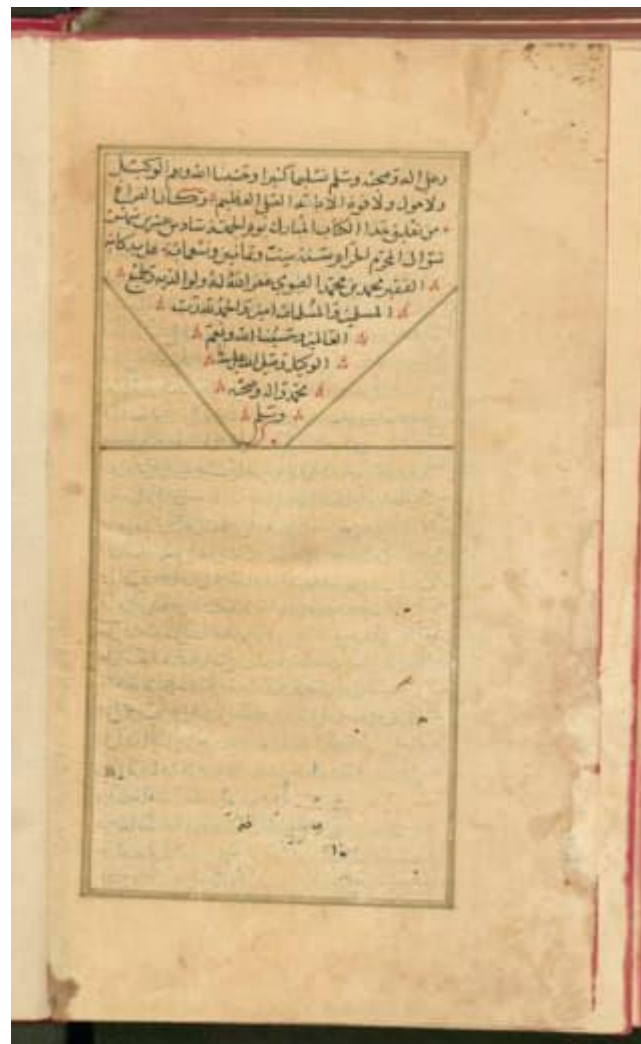 وعلى اله وصحبه وسلم تسليما كثيرا وحسبنا الله ونعم الوكيل
ولا حول ولا قوة الا بالله العلي العظيم وكان الفراغ
من تعليق هذا الكتاب المبارك يوم الجمعة سادس عشرين شهر
شوال المحرم الحرام سنة ست وثمانين وتسعمائة على يد كاتبه
الفقير محمد بن محمد غفر الله له ولوالديه ولجميع
المسلمين والمسلمات امين والحمد لله رب
العالمين وحسبنا الله ونعم
الوكيل وصلى الله على
محمد واله وصحبه
وسلم